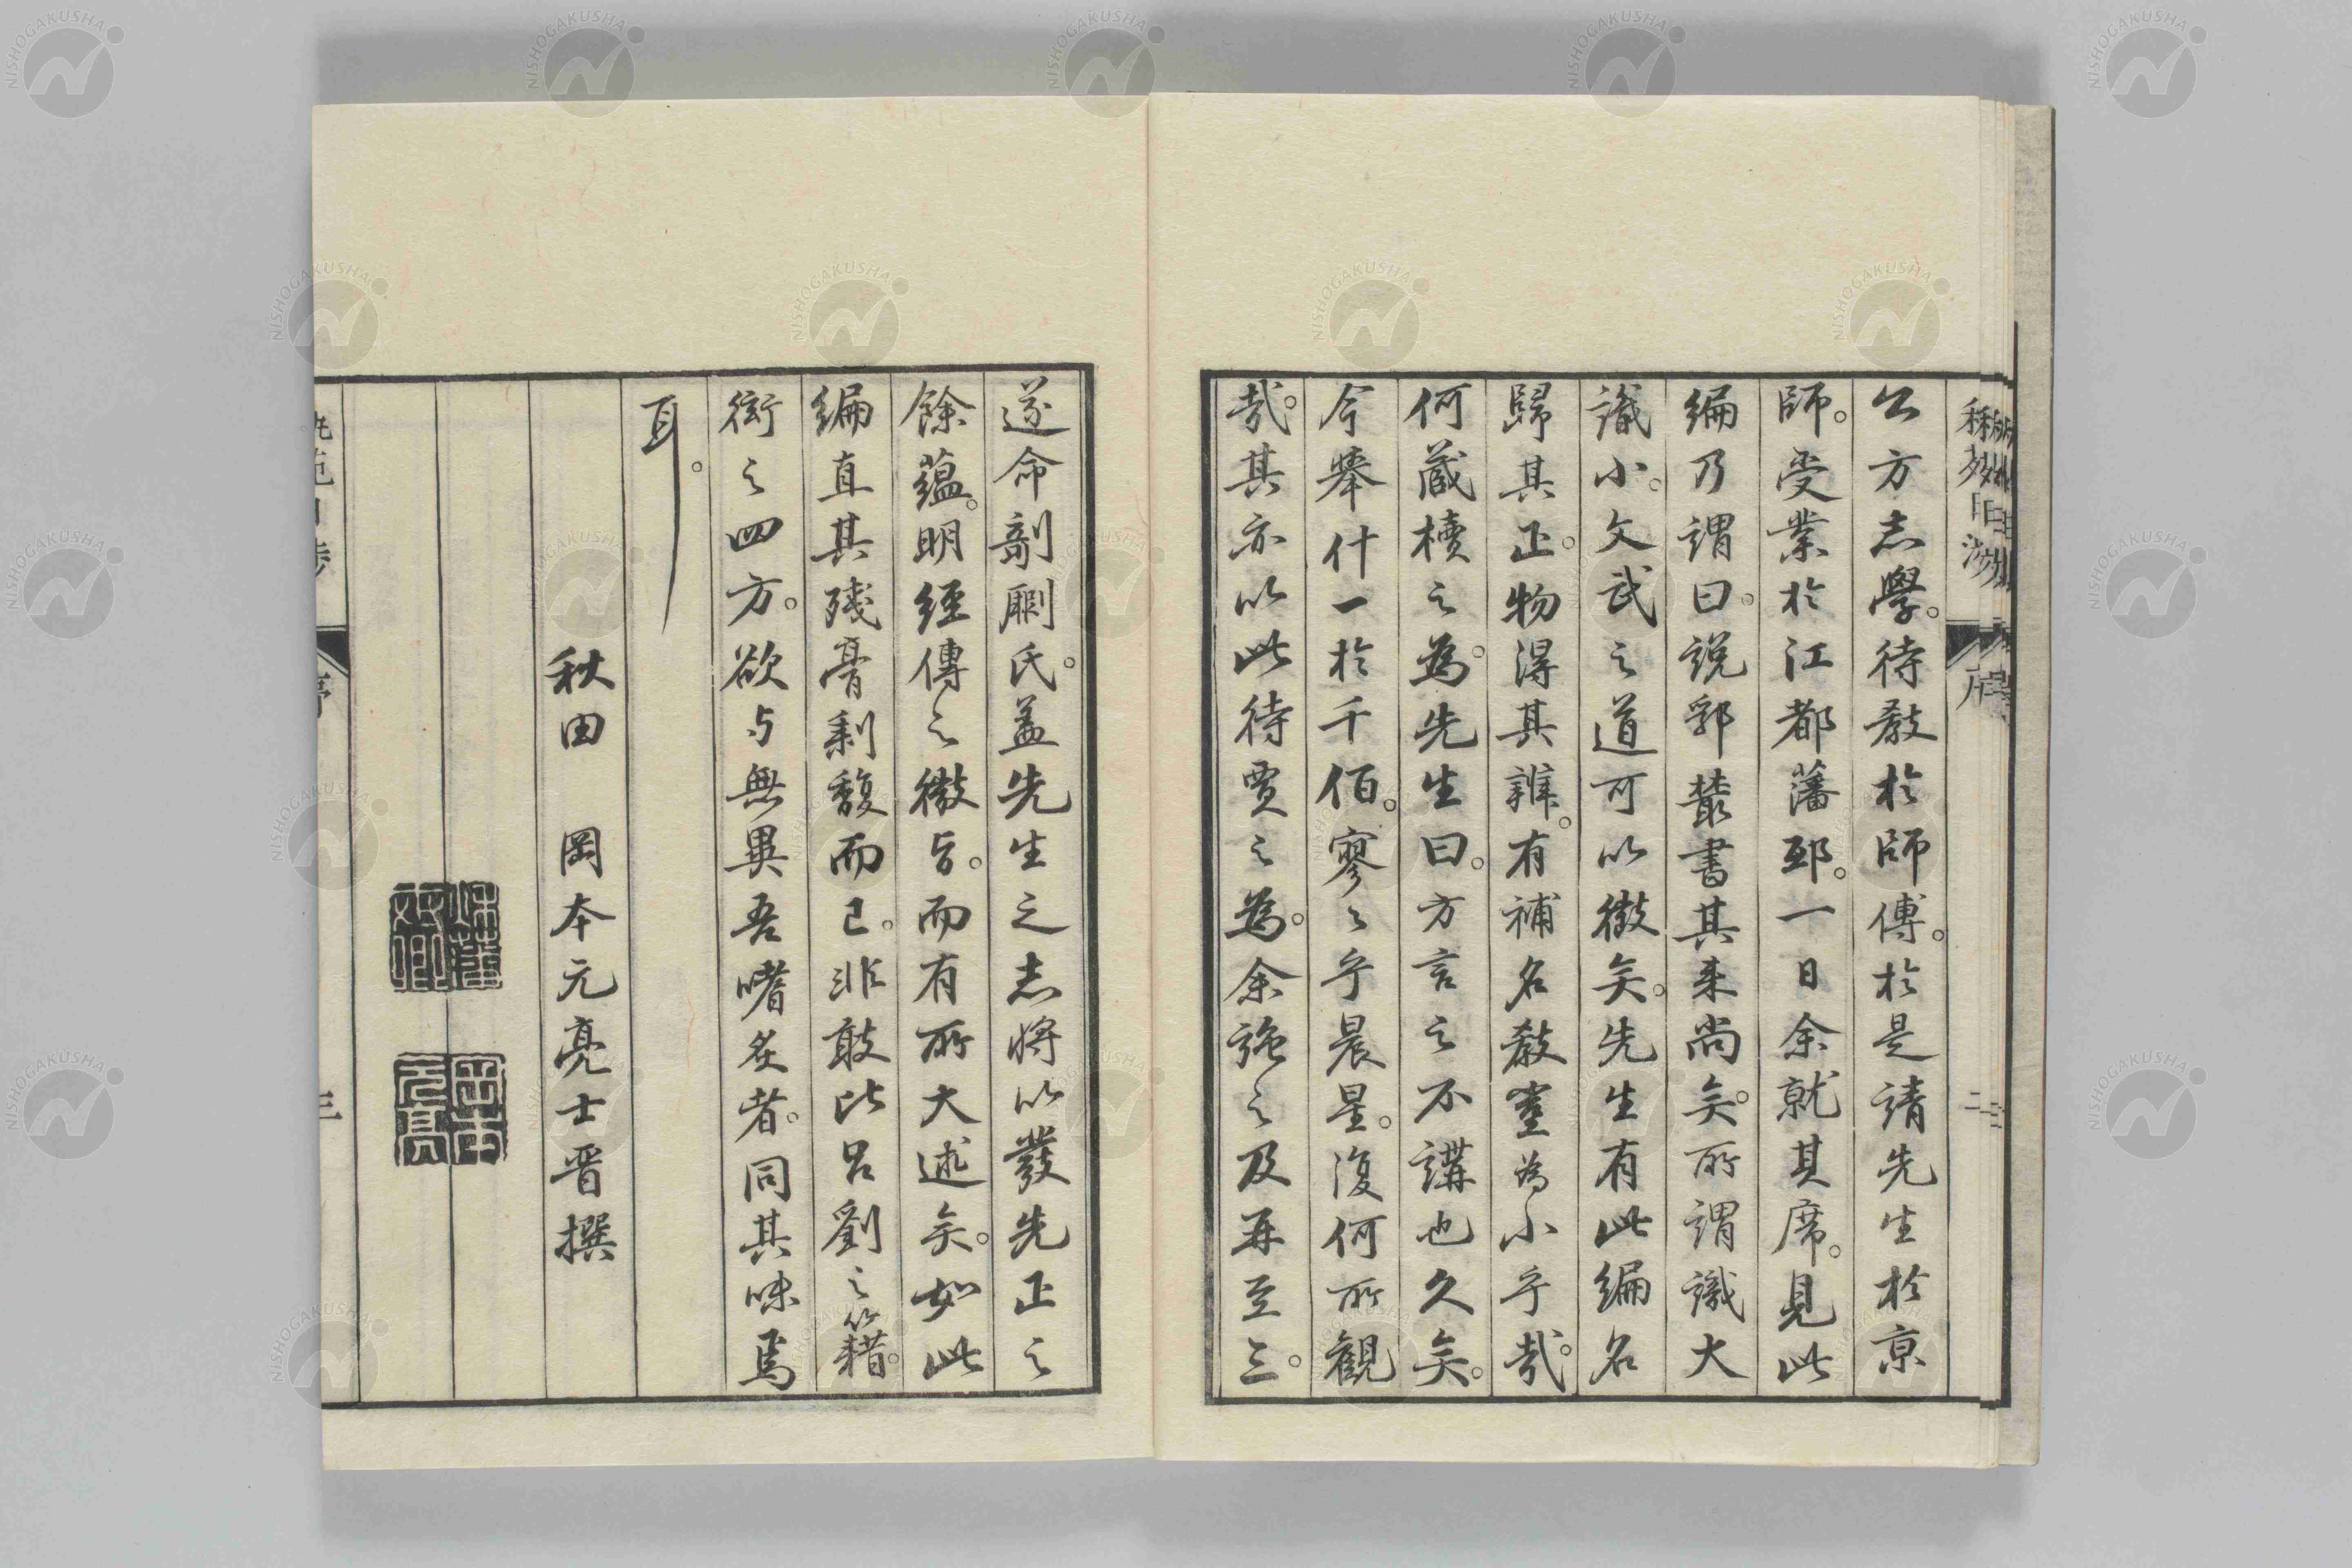 公方志學。待教於師傅。於是請先生於京
師。受業於江都藩邸。一日余就其席。見此
編乃謂曰。說郛叢書其来尚矣。所謂識大
識小。文武之道可以徵矣。先生有此編名
歸其正。物得其辨。有補名教豈為小乎哉。
何蔵櫝之為。先生曰。方言之不講也久矣。
今舉什一於千佰。寥〻乎晨星。復何所觀
哉。其亦以此待賈之為。余強之及再至三。
遂命剞劂氏。盖先生之志将以發先正之
餘蘊。明經傳之徵与。而有所大述矣。如此
編直其残膏剰馥而已。非敢比呂劉之籍。
衒之四方。欲与無異吾嗜炙者。同其味焉
耳。
秋田 岡本元亮士晋撰
岡本元亮
序
二
三
NISHOGAKUSHA